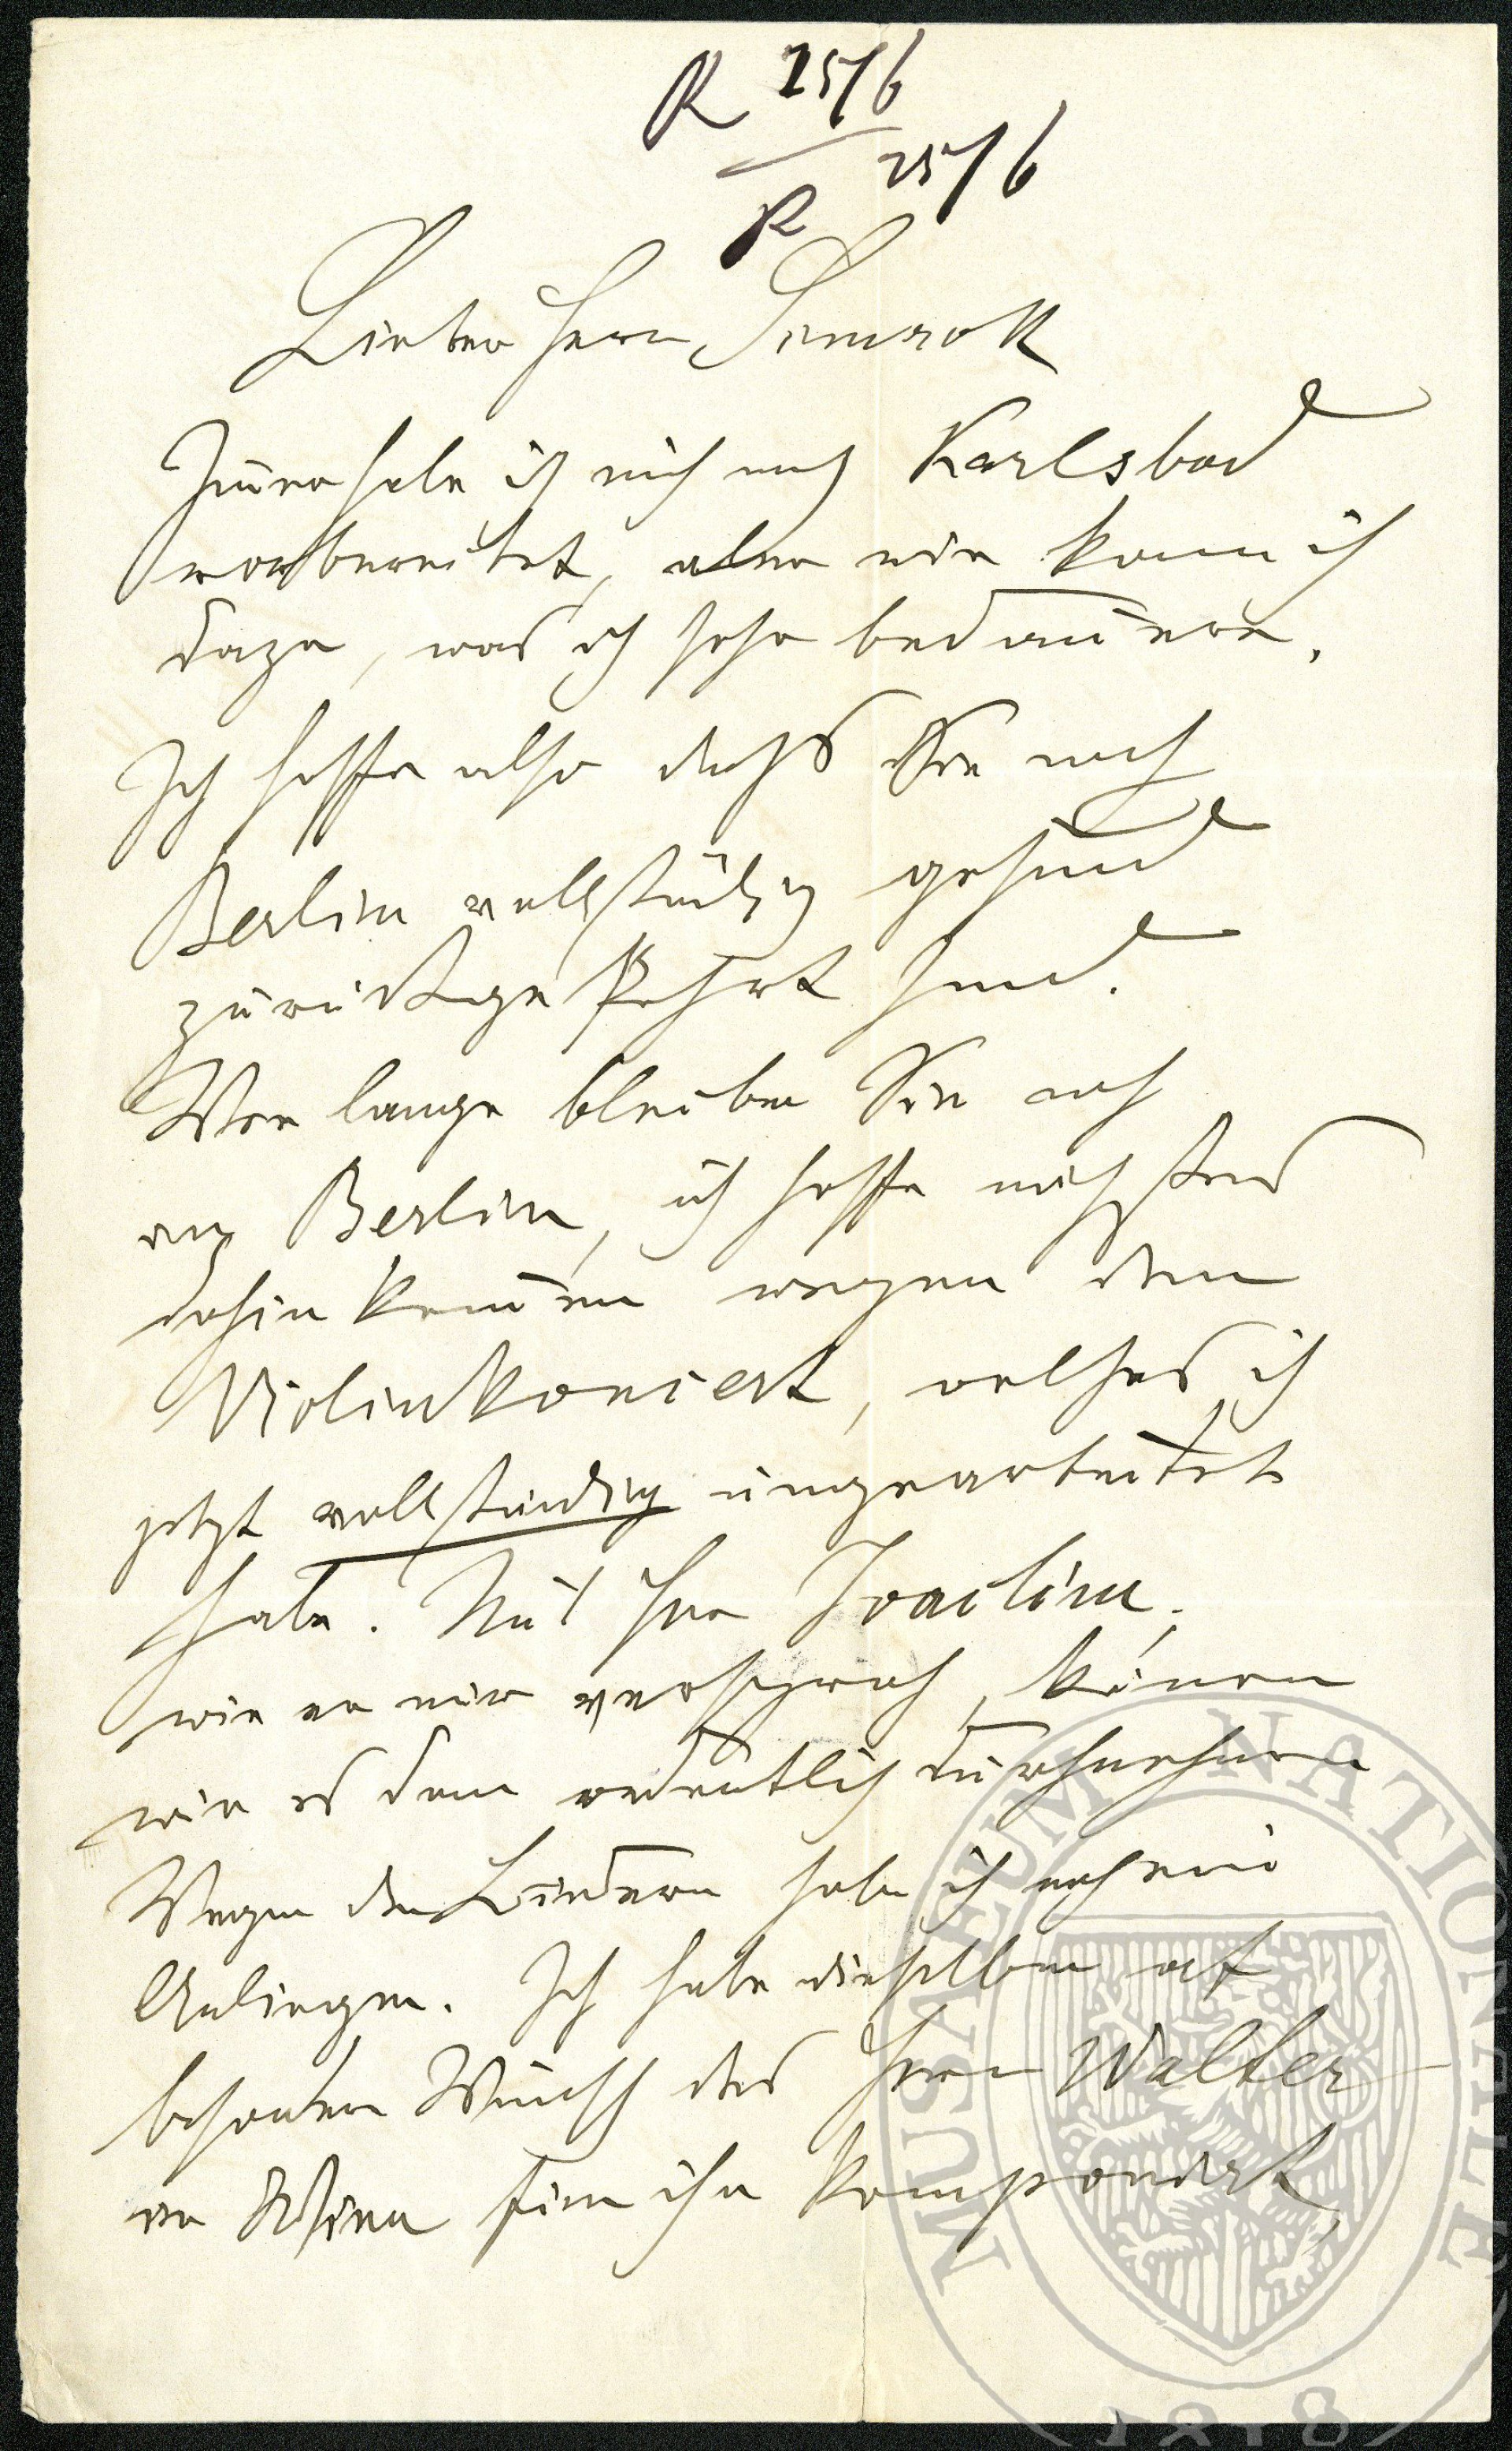 R 25/6
R 25/6
Lieber Herr Simrokk
Immer habe ich mich nach Karlsbad
vorbereitet, aber nie kam ich
dazu, was ich sehr bedauere.
Ich hoffe also dass Sie nach
Berlin vollständig gesund
zurückgekehrt sind.
Wie lange bleiben Sie noch
in Berlin, ich hoffe nächstens
dahin kommen wegen dem
Violinkoncert, welches ich
jetzt vollständig umgearbeitet
habe. Mit Herr Joachim,
wie er mir versprach, können
wir es dann ordentlich durchnehmen
Wegen den Liedern habe ich noch ein
Anliegen. Ich habe dieselben auf
besonderen Wunsch des Herrn Walter
in Wien für ihn komponirt,
MUSAEUM NATIONALE
1818